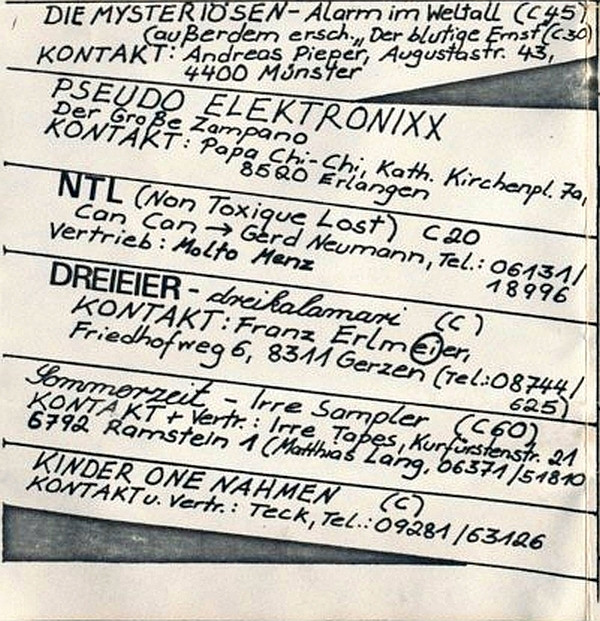 DIE MYSTERIÖSEN - Alarm im Weltall (C45)
(außerdem ersch. „Der blutige Ernst (C30)
KONTAKT: Andreas Pieper, Augustastr. 43,
4400 Münster
PSEUDO ELEKTRONIXX
Der Große Zampano
KONTAKT: Papa Chi-Chi, Kath. Kirchenpl. 7a,
8520 Erlangen
NTL (Non Toxique Lost) C20
Can Can → Gerd Neumann, Tel.: 06131/
18996
Vertrieb: Molto Menz
DREIEIER - dreikalamari (C)
KONTAKT: Franz Erlmeier,
Friedhofweg 6, 8311 Gerzen (Tel.: 08744/
625)
Sommerzeit - Irre Sampler (C60)
KONTAKT + Vertr.: Irre Tapes, Kurfürstenstr. 21
6792 Ramstein 1 (Matthias Lang, 06371/51810
KINDER ONE NAHMEN (C)
KONTAKT u. Vertr.: Teck, Tel.: 09281/63126